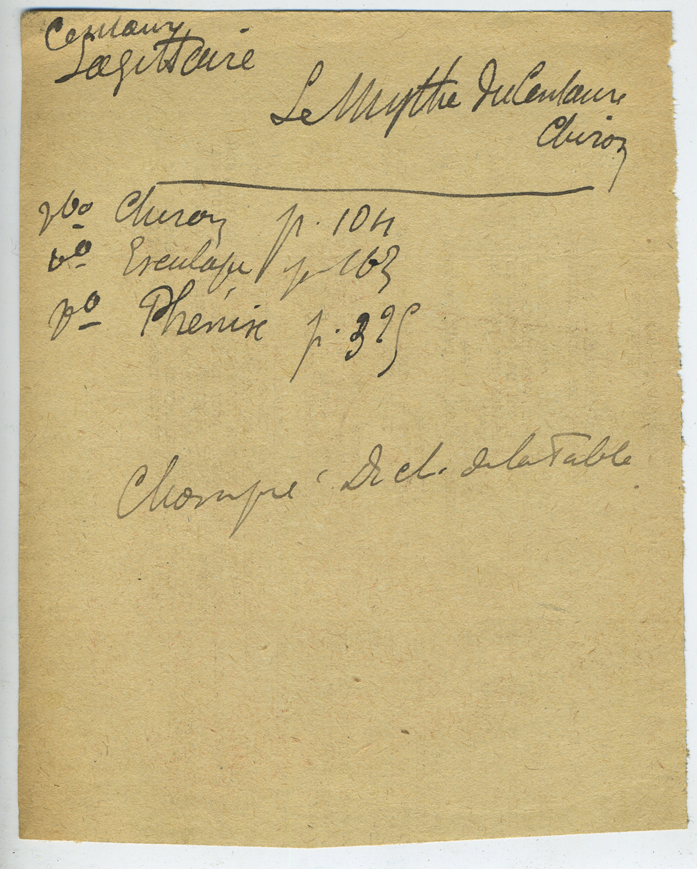 Centaure
Sagittaire
Le Mythe du Centaure
Chiron
Vbo Chiron p. 104
Vo Esculape p 163
Vo Phénix p. 325
Chompré Dict. de la Fable